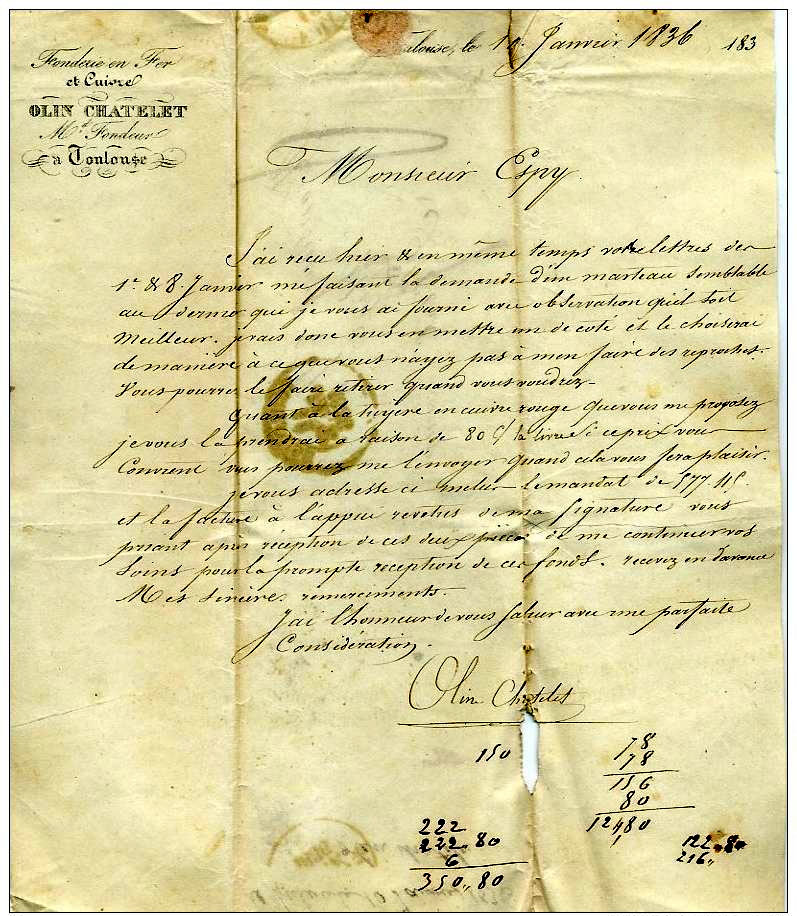 Fonderie en Fer
et Cuivre
OLIN CHATELET
Md Fondeur
à Toulouse
Toulouse, le Janvier 1836 183
Monsieur Espy.
J'ai recu hier & en même temps votre lettres des
1er & 8 Janvier me faisant la demande d'un marteau semblable
au dernier qui je vous ai fourni avec observation qu'il soit
Meilleur. jvais donc vous en mettre un de coté et le choiserai
de maniere à ce que vous n'ayez pas à men faire des reproches.
Vous pourrez le faire retirer quand vous voudrez
quant à la tuyere en cuivre rouge que vous me proposez
je vous la prendrai a raison de 80 la livre si ce prix vous
Convient vous pourrez me l'envoyer quand cela vous fera plaisir.
je vous adresse ci inclus le mandat de 577
et la facture à l'appui revetus de ma signature vous
priant après reception de ces deux pièces de me continuer vos
Soins pour la prompte reception de ces fonds. recevez en davance
Mes Sincères remerciments.
J'ai lhonneur de vous saluer avec une parfaite
Considération.
Olin Chatelet
150
78
78
156
80
12480
222
222.80
6
350,,80
122,,80
216,,